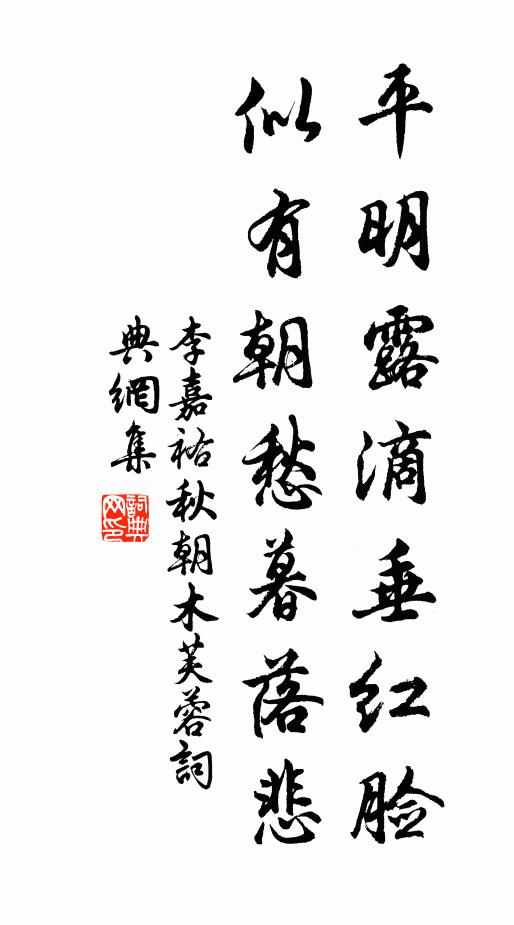 平明露滴垂红脸
似有朝愁暮落悲
李嘉祐秋朝木芙蓉詞
典網集
詞典网印